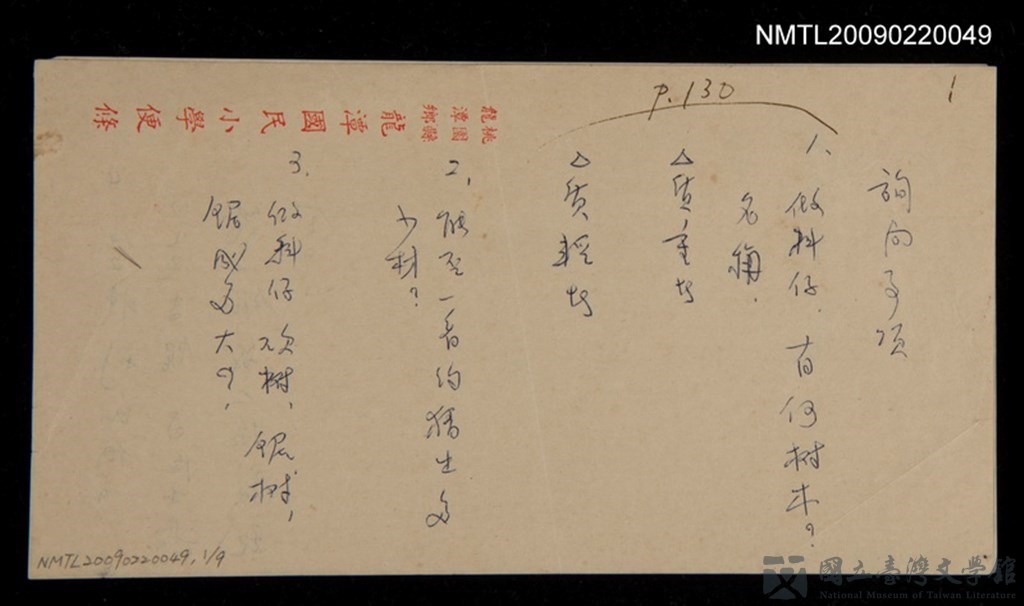 NMTL20090220049
1
P.130
詢问事项
1、做料仔．有何树木？
名稱．
△质重者
△质輕者
2、能至一
生多
少材？
3．做料仔．砍树、鋸树，
鋸成多大？．
桃園縣
龍潭鄉
龍潭國民小學便條
NMTL20090220049, 1/9
國立臺灣文學館
National Museum of Taiwan Literature